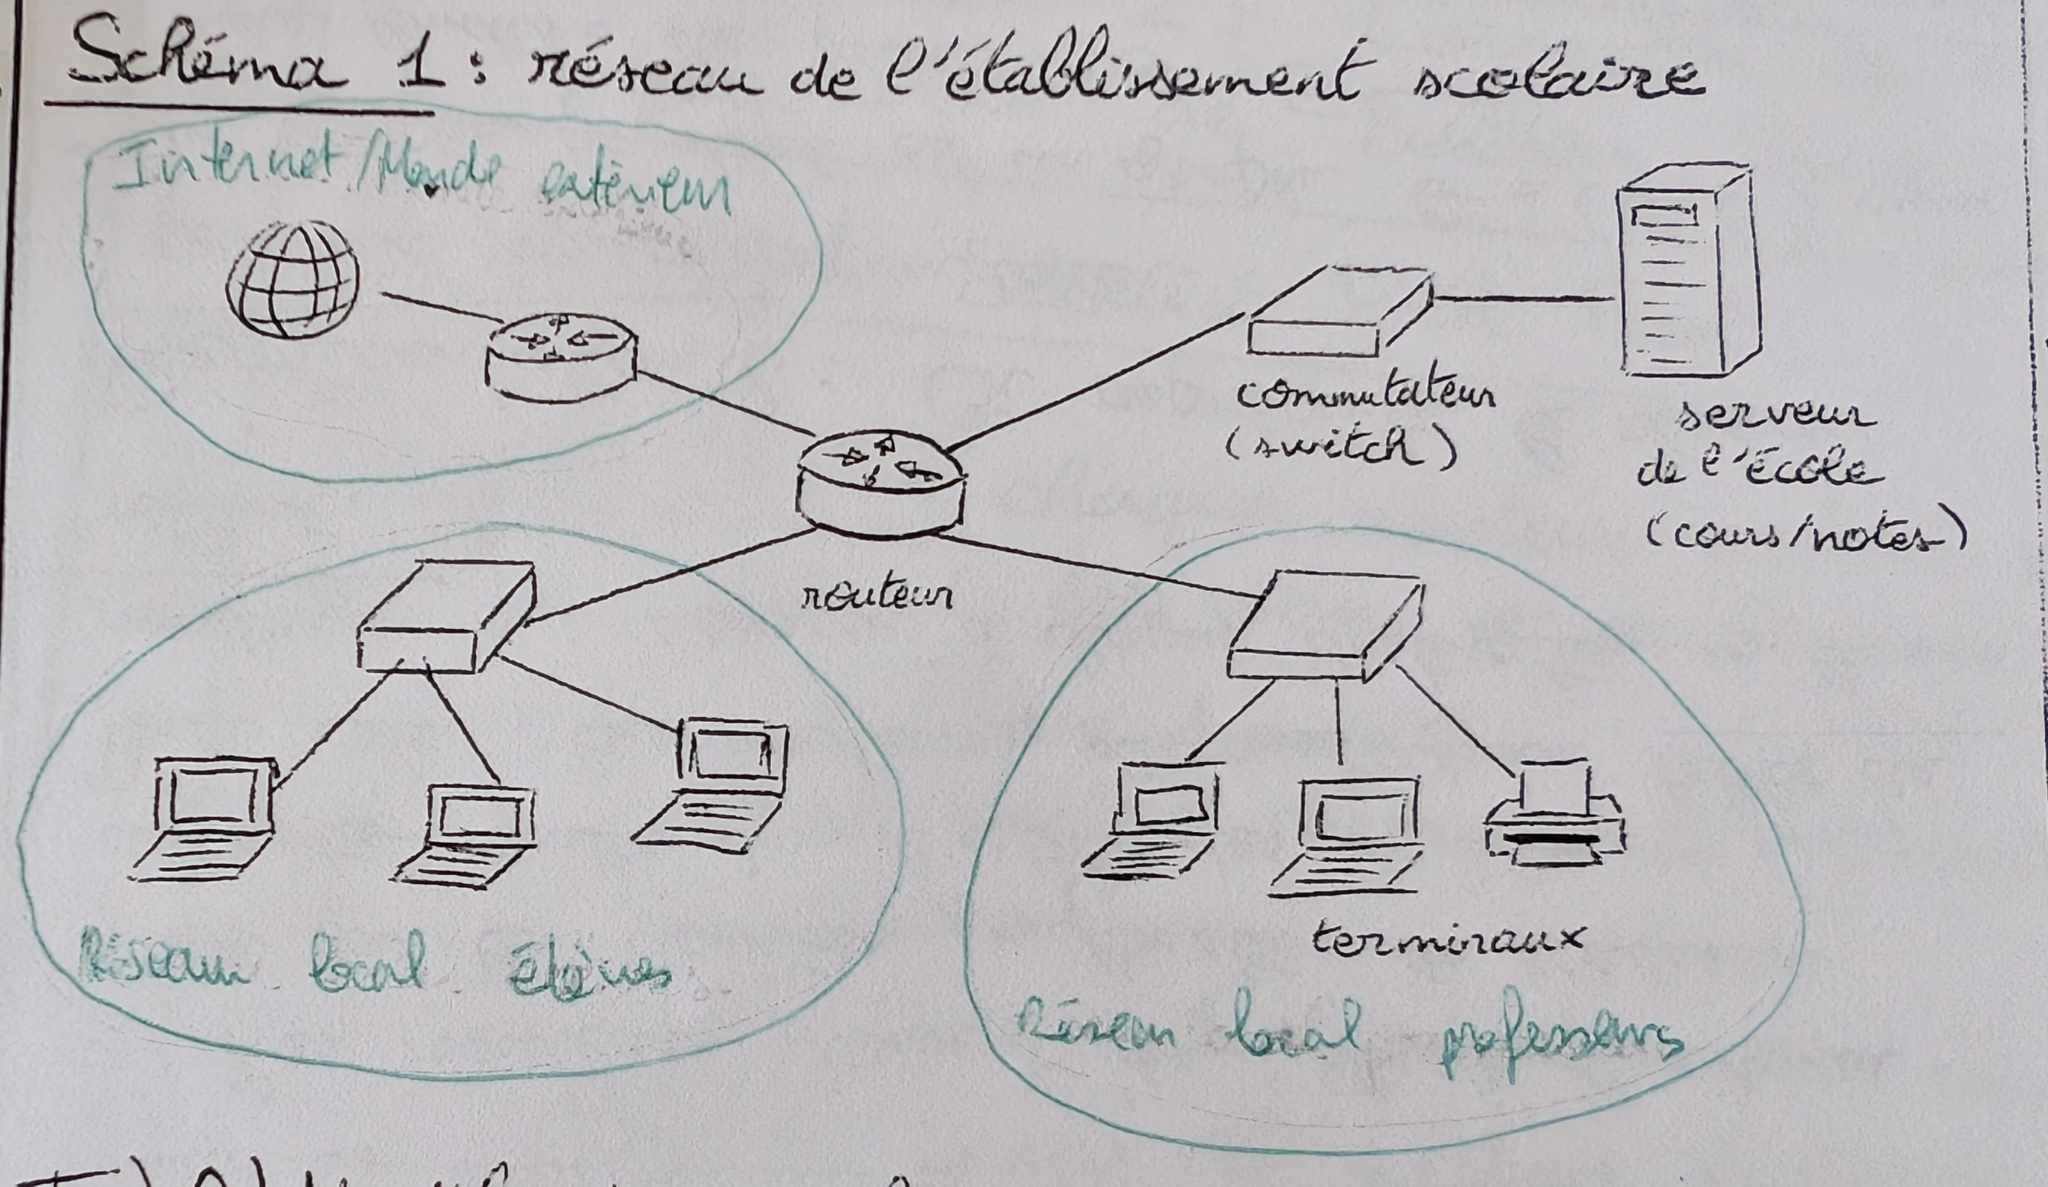 Schéma 1 : réseau de l'établissement scolaire
Internet/Monde extérieur
commutateur
(switch)
serveur
de l'École
(cours/notes)
routeur
terminaux
Réseau local élèves
Réseau local professeurs